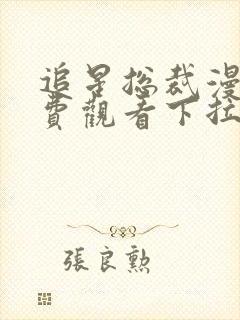 追星总裁漫
費觀看下拉
張良勲